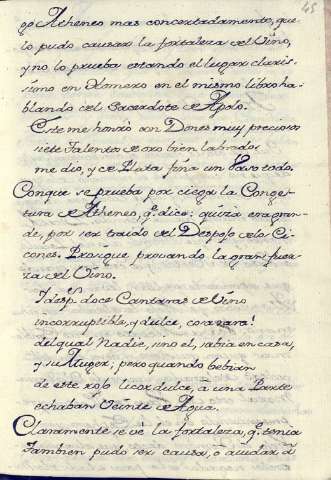 45
op Atheneo mas concertadamente, que
lo pudo causar la fortaleza del Vino,
y no lo prueba estando el lugar claris-
simo en Homero en el mismo libro ha-
blando del Sacerdote de Apolo.
Este me honrò con Dones muy preciosos
siete Talentos de oro bien labrados
me dio, y de Plata fina un Vaso todo.
Conque se prueba por ciega la Conge-
tura de Atheneo, q.e dice: quizà era gran-
de, por ser traido del Despojo de los Ci-
cones. Prosigue provando la gran fuer-
za del Vino.
I desp.s doce Cantaras de Vino
incorruptible, y dulce, cosa rara!
del qual Nadie, sino el, sabia en casa,
y su Muger; pero quando bebian
de este rojo licor dulce, à una Parte
echaban Veinte de Agua.
Claramente se vè la fortaleza, q.e tenia
Tambien pudo ser causa, ò aiudar à